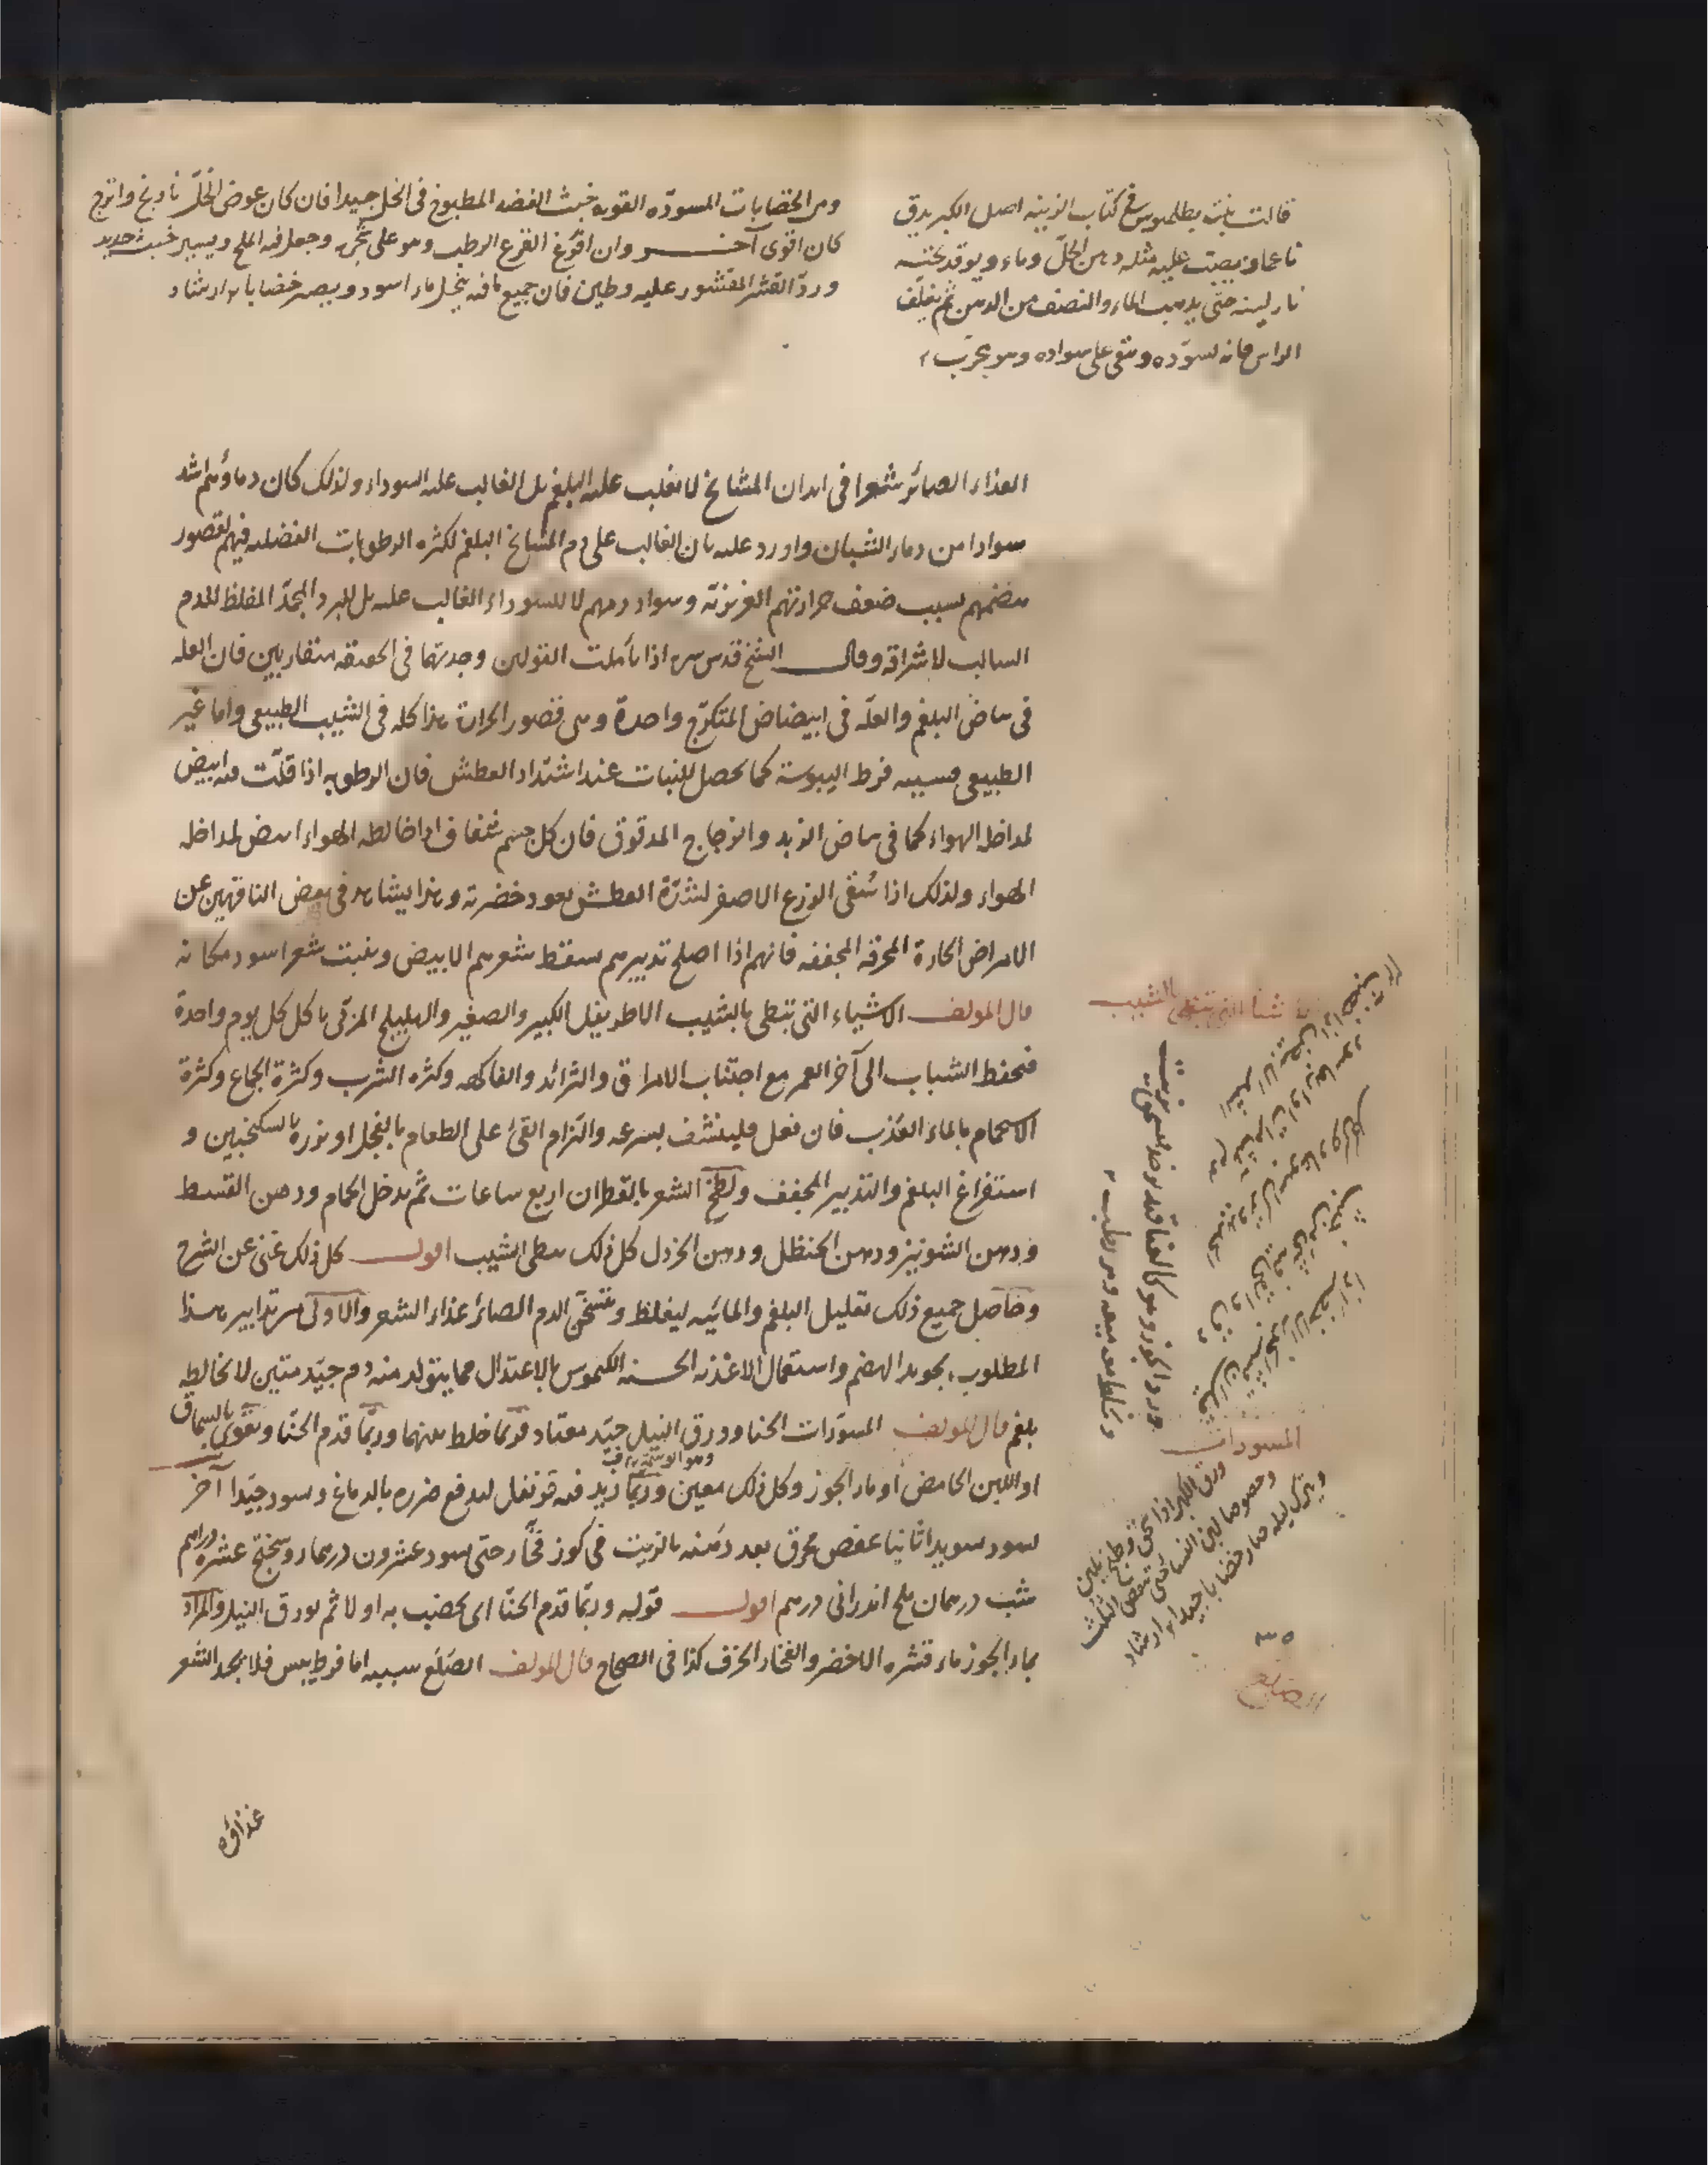 قالت بنت بطلميوس في كتاب الزينه اصل الكبر يدق
ناعما ويصب عليه مثله دهن الحلّ وماء ويوقد تحته
نار لينه حتى يذهب الماء والنصف من الدهن ثم يغلّف
الراس فانه يسوّده ويبقى على سواده وهو مجرّب
ومن الخضابات المسودّه القويه خبث الفضه المطبوخ في الخل جيدا فان كان عوض الخلّ نارنج واترج
كان اقوى آخر وان اقوّر القرع الرطب وهو على شجره وجعل فيه الملح ويسير خبث حديد
وردّ القشر المقشور عليه وطين فان جميع ما فيه ينحل ماء اسود ويصير خضابا ارشاد
الغذاء الصائر شعرا في ابدان المشائخ لا يغلب عليه البلغم بل الغالب عليه السوداء ولذلك كان دماؤهم اشد
سوادا من دماء الشبان واورد عليه بان الغالب على دم المشائخ البلغم لكثره الرطوبات الفضليه فيهم لقصور
هضمهم بسبب ضعف حرارتهم الغريزيّه وسواد دمهم لا للسوداء الغالب عليه بل للبرد المجمّد المغلظ للدم
السالب لاشراقه وقال الشيخ قدس سره اذا تأملت القولين وجدتهما في الحقيقه متقاربين فان العله
في بياض البلغم والعلّه في ابيضاض المتكرّج واحدة وهي قصور الحرارة هذا كله في الشيب الطبيعي واما غير
الطبيعي فسببه فرط اليبوسة كما يحصل للنبات عند اشتداد العطش فان الرطوبه اذا قلّت منه ابيض
لمداخلة الهواء كما في بياض الزبد والزجاج المدقوق فان كل جسم شفاف اذا خالطه الهواء ابيض لمداخله
الهواء ولذلك اذا سُقى الزرع الاصفر لشدّة العطش يعود خضرته وهذا يشاهد في بعض الناقهين عن
الامراض الحادة المحرقه المجففه فانهم اذا اصلح تدبيرهم سقط شعرهم الابيض وينبت شعر اسود مكانه
قال المولف الاشياء التي تبطى بالشيب الاطريفل الكبير والصغير والهليلج المربّى ياكل كل يوم واحدة
فيحفظ الشباب الى آخر العمر مع اجتناب الامراق والثرائد والفاكهه وكثره الشرب وكثرة الجماع وكثرة
الاستحمام بالماء العذب فان فعل فلينشف بسرعه والتزام القئ على الطعام بالفجل او بزره بالسكنجبين و
استفراغ البلغم والتدبير المجفف ولطخ الشعر بالقطران اربع ساعات ثم يدخل الحمام ودهن القسط
ودهن الشونيز ودهن الحنظل ودهن الخردل كل ذلك يبطى الشيب اقول كل ذلك غنى عن الشرح
وحاصل جميع ذلك تقليل البلغم والمائيه ليغلظ ويسخن الدم الصائر غذاء الشعر والاولى من تدابير هذا
المطلوب تجويد الهضم واستعمال الاغذيه الحسنه الكيموس بالاعتدال مما يتولد منه دم جيّد متين لا يخالطه
بلغم قال المولف المسوّدات الحنا وورق النيل جيّد معتاد فربّما خلط بينهما وربّما قدم الحنّا ويقوى بالسماق
او اللبن الحامض او ماء الجوز وكل ذلك معين وربّما زيد فيه قرنفل ليدفع ضرره بالدماغ ويسود جيّدا آخر
يسود سويدا ثانيا عفص محرق بعد دهنه بالزيت في كوز فخّار حتى يسود عشرون درهما روسختج عشرة دراهم
شب درهمان ملح اندرانى درهم اقول قوله وربّما قدم الحنّا اى يخضب به اولا ثم بورق النيل والمراد
بماء الجوز ماء قشره الاخضر والفخار الخزف كذا في الصحاح قال المولف الصّلع سببه اما فرط يبس فلا يجد الشعر
المسودات
ورق الكبر اذا دق وطبخ بلبن
وخصوصا لبن النساء حتى ينقص الثلث
ويترك ليله صار خضابا جيدا ارشاد
غذاؤه